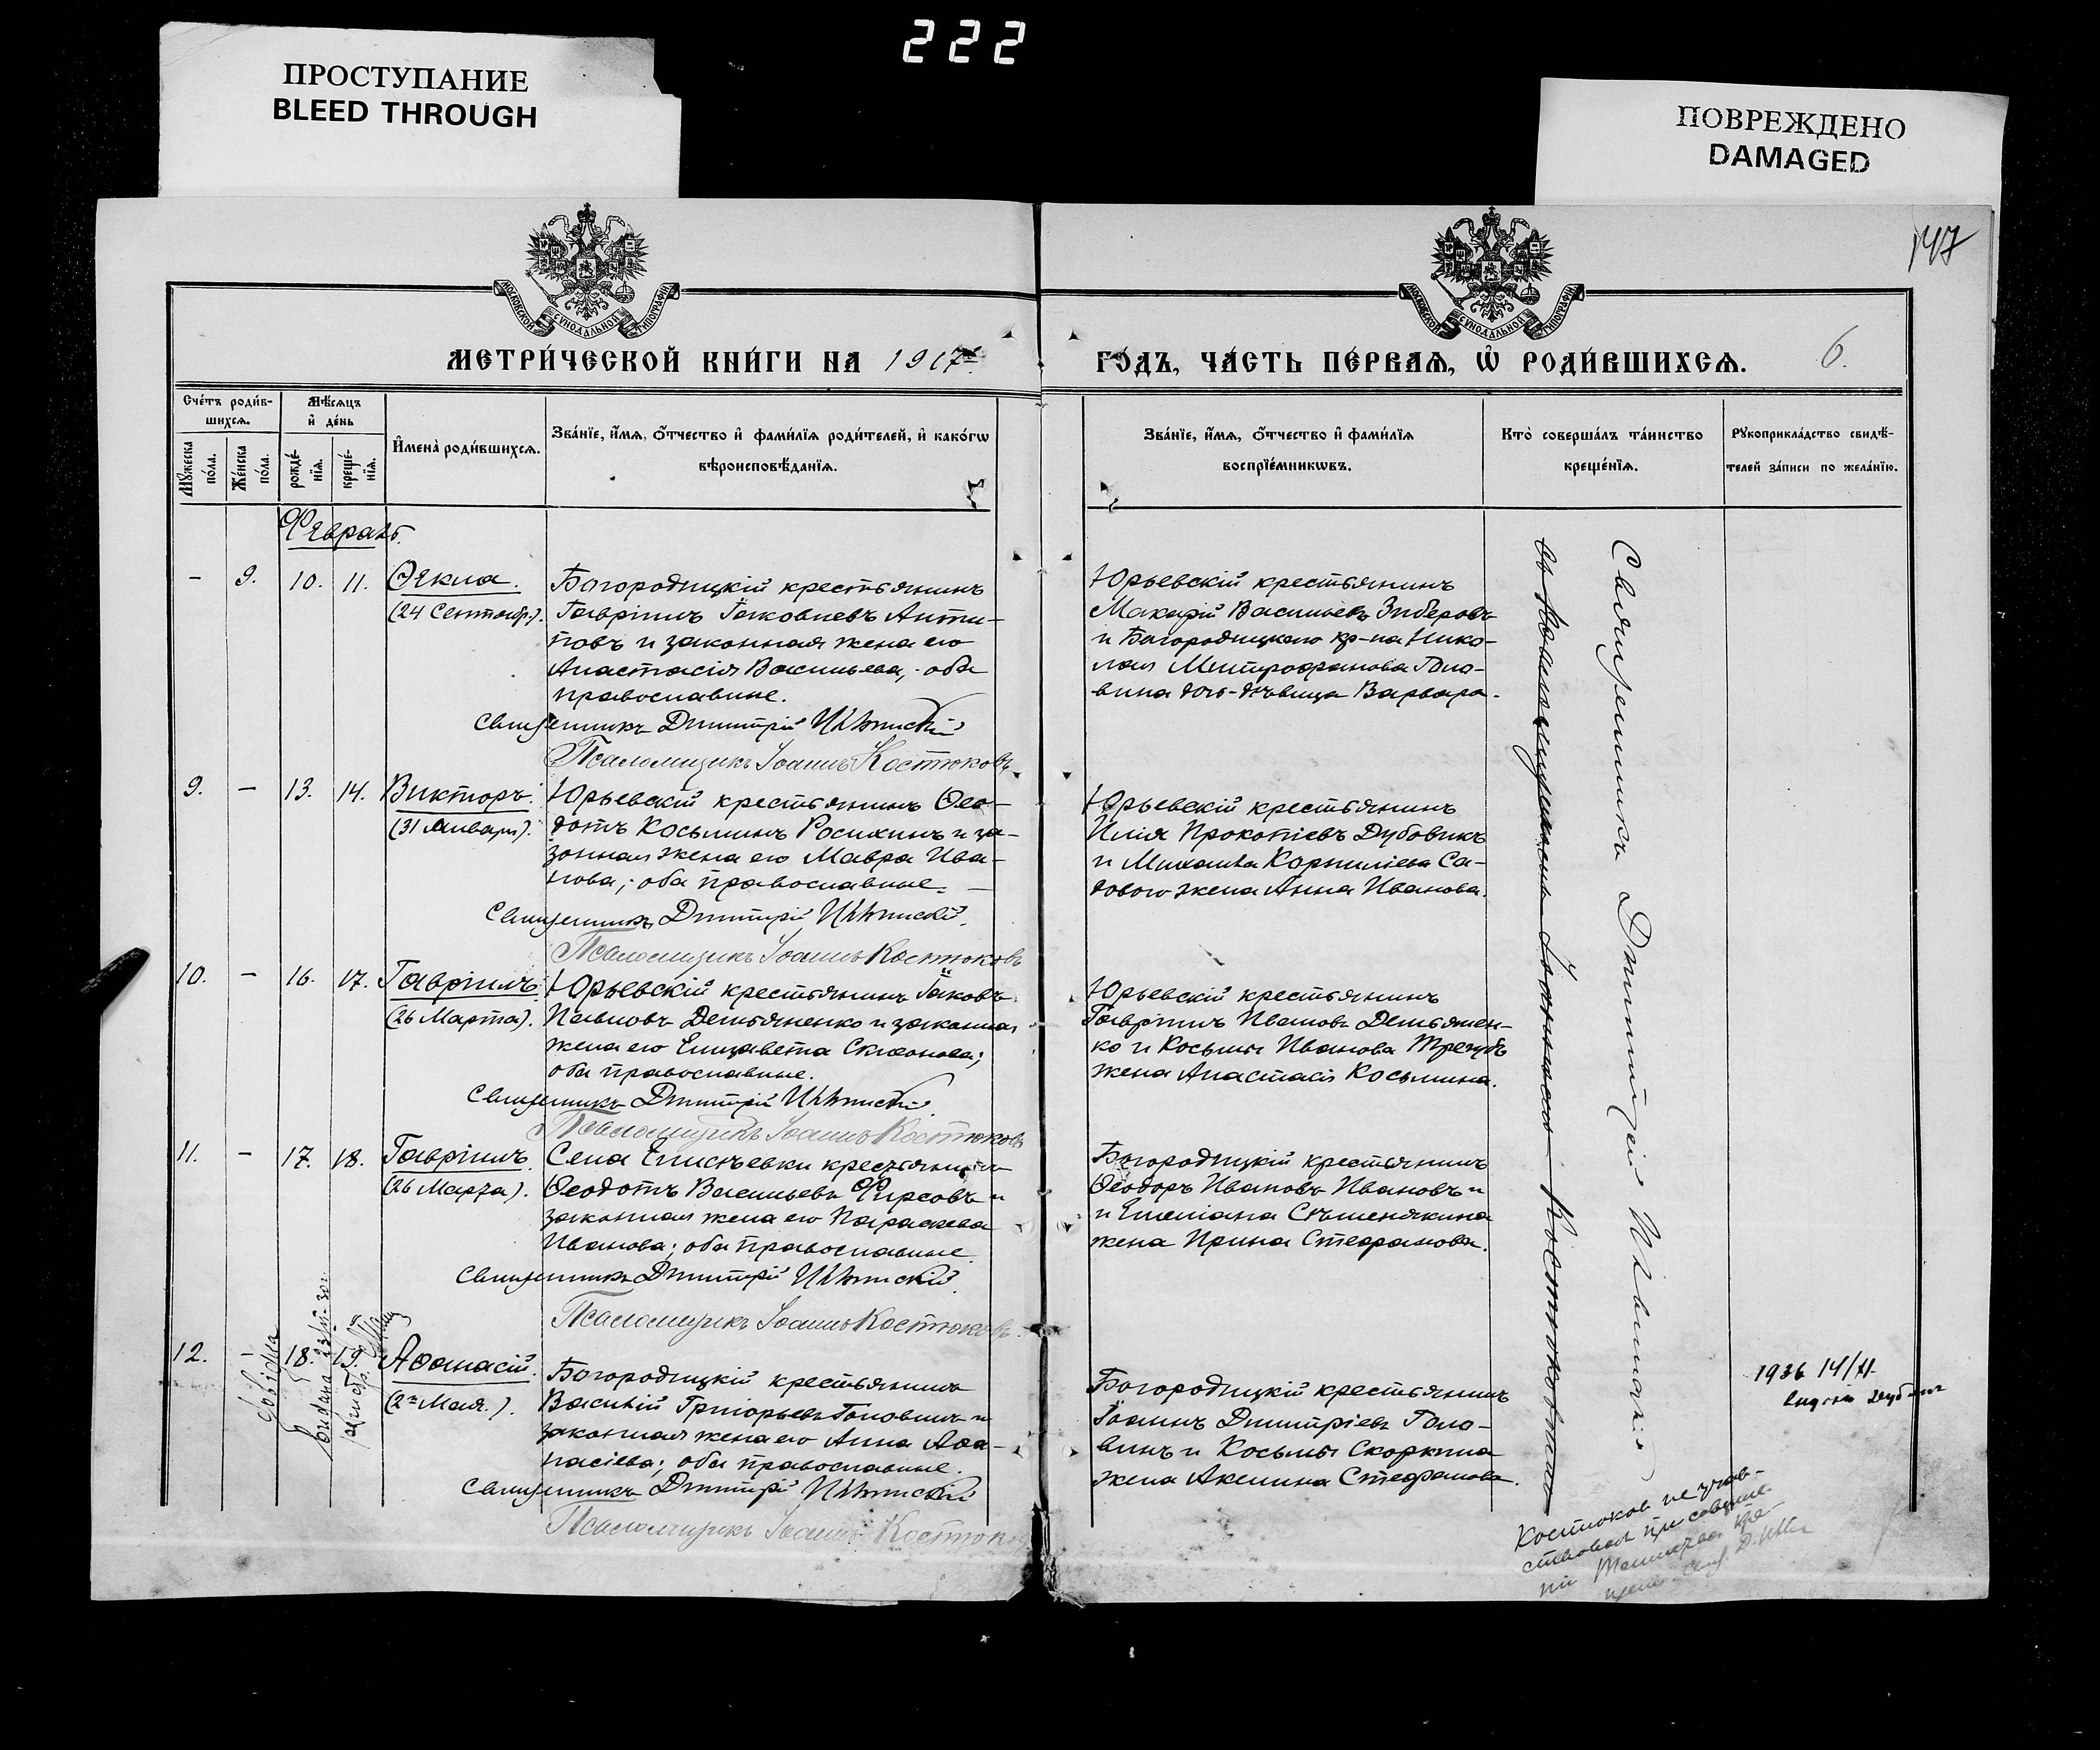 222
ПРОСТУПАНИЕ
BLEED THROUGH
ПОВРЕЖДЕНО
DAMAGED
147
МОСКОВСКОЙ СѴНОДАЛЬНОЙ ТИПОГРАФІИ
МОСКОВСКОЙ СѴНОДАЛЬНОЙ ТИПОГРАФІИ
МЕТРИ́ЧЕСКОЙ КНИ́ГИ НА 1917й
ГО́ДЪ, ЧА́СТЬ ПЕ́РВАѦ, Ѡ҆ РОДИ́ВШИХСѦ.
6.
Сче́тъ роди́в-
шихсѧ.
Мѣ́сѧцъ
и҆ де́нь
Мꙋ́жеска
по́ла.
Же́нска
по́ла.
рожде́-
нїѧ.
креще́-
нїѧ.
И҆мена̀ роди́вшихсѧ.
Зва́нїе, и҆́мѧ, ѻ҆́тчество и҆ фами́лїѧ роди́телей, и҆ како́гѡ
вѣроисповѣ́данїѧ.
Зва́нїе, и҆́мѧ, ѻ҆́тчество и҆ фами́лїѧ
воспрїе́мникѡвъ.
Кто̀ соверша́лъ та́инство
креще́нїѧ.
Рꙋкоприкла́дство свидѣ́-
телей за́писи по жела́нїю.
Февраль.
- 9. 10. 11. Ѳекла.
(24 Сентябр.).
Богородицкій крестьянинъ
Гавріилъ Іаковлевъ Анти-
повъ и законная жена его
Анастасія Васильева, оба
православные.
Священникъ Дмитрій
Псаломщикъ Іоаннъ Костюковъ
Юрьевскій крестьянинъ
Макарій Васильевъ Зиберовъ
и Богородицкаго кр-на Нико-
лая Митрофанова Голо-
вина дочь-дѣвица Варвара.
9. - 13. 14. Викторъ.
(31 Января).
Юрьевскій крестьянинъ Ѳео-
дотъ Косьминъ Росихинъ и за-
конная жена его Мавра Ива-
нова; оба православные.
Священникъ Дмитрій
Псаломщикъ Іоаннъ Костюковъ
Юрьевскій крестьянинъ
Илія Прокопіевъ Дубовикъ
и Михаила Корниліева Са-
дового жена Анна Иванова.
10. - 16. 17. Гавріилъ.
(26 Марта).
Юрьевскій крестьянинъ Іаковъ
Павловъ Демьяненко и законная
жена его Елизавета
оба православные.
Священникъ Дмитрій
Псаломщикъ Іоаннъ Костюковъ
Юрьевскій крестьянинъ
Гавріилъ Ивановъ Демьянен-
ко и Косьмы Иванова Трегубъ
жена Анастасія Косьмина.
11. - 17. 18. Гавріилъ.
(26 Марта).
Села Елисѣевки крестьянинъ
Ѳеодотъ Васильевъ Фирсовъ и
законная жена его Параскева
Иванова; оба православные
Священникъ Дмитрій
Псаломщикъ Іоаннъ Костюковъ
Богородицкій крестьянинъ
Ѳеодоръ Ивановъ Ивановъ и
и Емеліана
жена Ирина Стефанова.
12. - 18. 19. Аѳанасій.
(2го Мая.).
Богородицкій крестьянинъ
Василій Григорьевъ Головинъ и
законная жена его Анна Аѳа-
насіева; оба православные.
Священникъ Дмитрій
Псаломщикъ Іоаннъ
Богородицкій крестьянинъ
Іоаннъ Дмитріевъ Голо-
винъ и Косьмы Скоркина
жена Акилина Стефанова.
Священникъ Дмитрій
съ Псаломщикомъ Іоанномъ Костюковымъ
1936 14/II
Костюковъ не участ-
ствовалъ при соверше-
ніи Таинства кре-